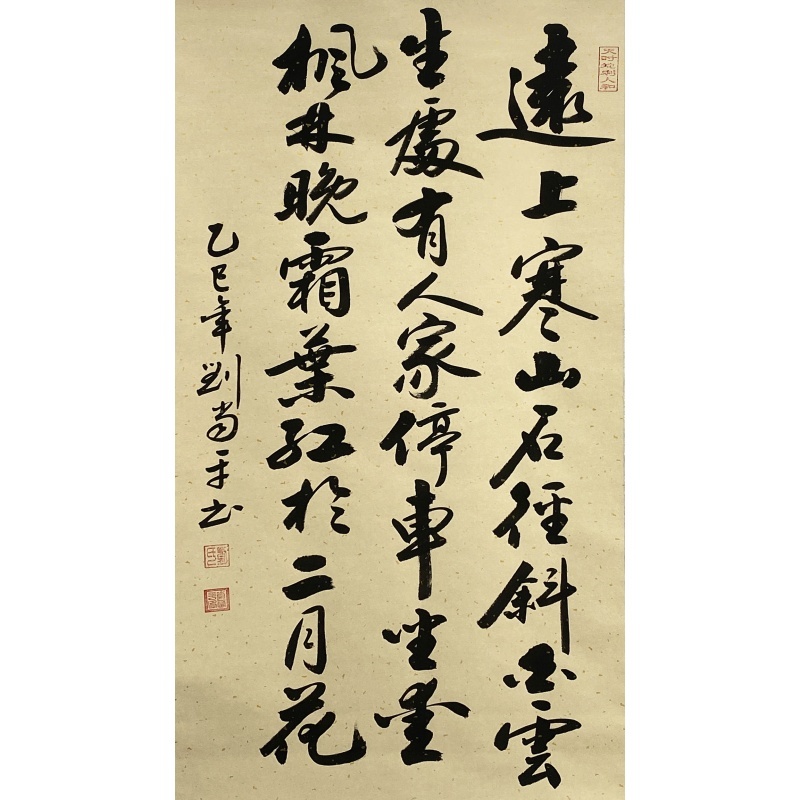 遠上寒山石徑斜白雲
生處有人家停車坐愛
楓林晚霜葉紅於二月花
乙巳年劉尚平书